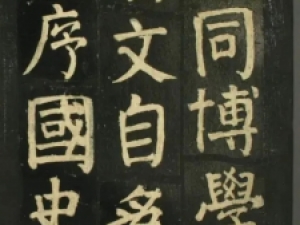 同博學
文自多
序國史